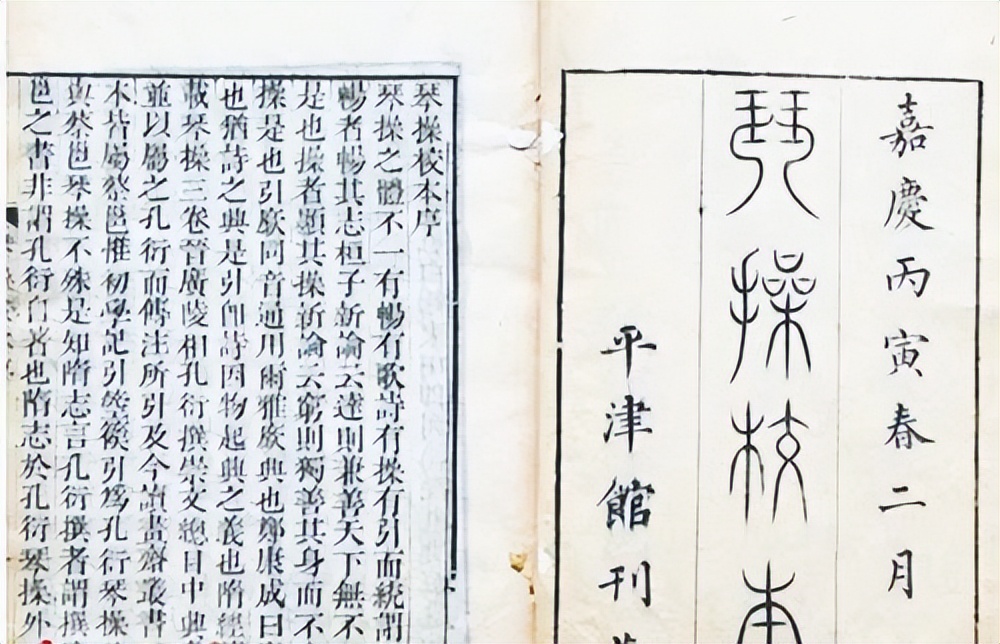 嘉慶丙寅春二月
琴操校本
平津館刊
琴操校本序
琴操之體不一有暢有歌詩有操有引而統謂
暢者暢其志桓子新論云達則兼善天下無不
是也操者顯其操新論云窮則獨善其身而不
操是也引廞同音通用爾雅廞興也鄭康成曰
也猶詩之興是引卽詩因物起興之義也隋經
載琴操三卷晉廣陵相孔衍撰崇文總目中興
並以屬之孔衍而傳注所引及今讀畫齋叢書
本皆屬蔡邕惟初學記引箜篌引爲孔衍琴操
與蔡邕琴操不殊是知隋志言孔衍撰者謂撰
邕之書非謂孔衍自著也隋志於孔衍琴操外